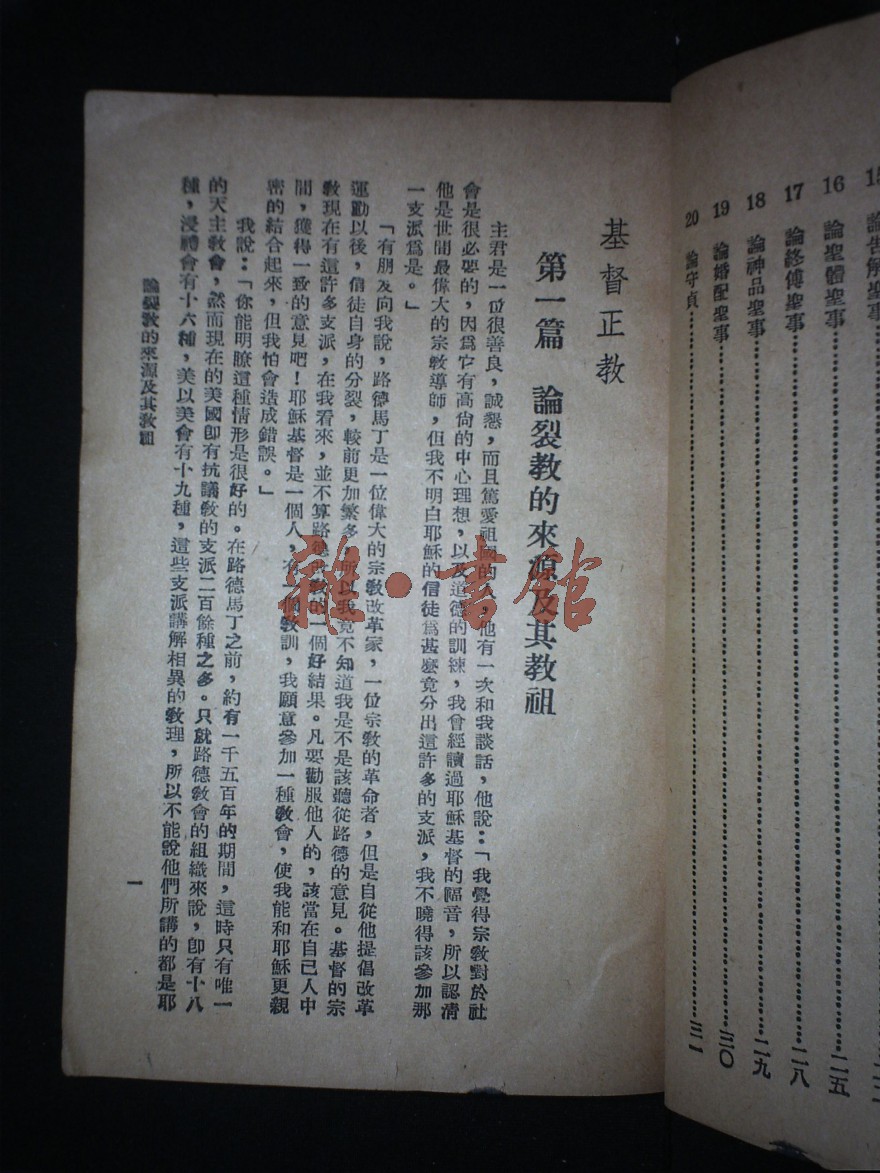 15 論告解聖事
16 論聖體聖事……二五
17 論終傅聖事……二八
18 論神品聖事……二九
19 論婚配聖事……三〇
20 論守貞……三一
基督正教
第一篇 論裂教的來源及其教祖
主君是一位很善良,誠懇,而且篤愛祖國的人,他有一次和我談話,他說:「我覺得宗教對於社
會是很必要的,因爲它有高尙的中心理想,以及道德的訓練,我曾經讀過耶穌基督的福音,所以認清
他是世間最偉大的宗教導師,但我不明白耶穌的信徒爲甚麽竟分出這許多的支派,我不曉得該參加那
一支派爲是。」
「有朋友向我說,路德馬丁是一位偉大的宗敎改革家,一位宗敎的革命者,但是自從他提倡改革
運動以後,信徒自身的分裂,較前更加繁多,所以我竟不知道我是不是該聽從路德的意見。基督的宗
敎現在有這許多支派,在我看來,並不算路德改敎的一個好結果。凡要勸服他人的,該當在自己人中
間,獲得一致的意見吧!耶穌基督是一個人,有一個敎訓,我願意參加一種敎會,使我能和耶穌更親
密的結合起來,但我怕會造成錯誤。」
我說:「你能明瞭這種情形是很好的。在路德馬丁之前,約有一千五百年的期間,這時只有唯一
的天主敎會,然而現在的美國卽有抗議敎的支派二百餘種之多。只就路德敎會的組織來說,卽有十八
種,浸禮會有十六種,美以美會有十九種,這些支派講解相異的敎理,所以不能說他們所講的都是耶
論裂敎的來源及其敎祖
一
雜·書館